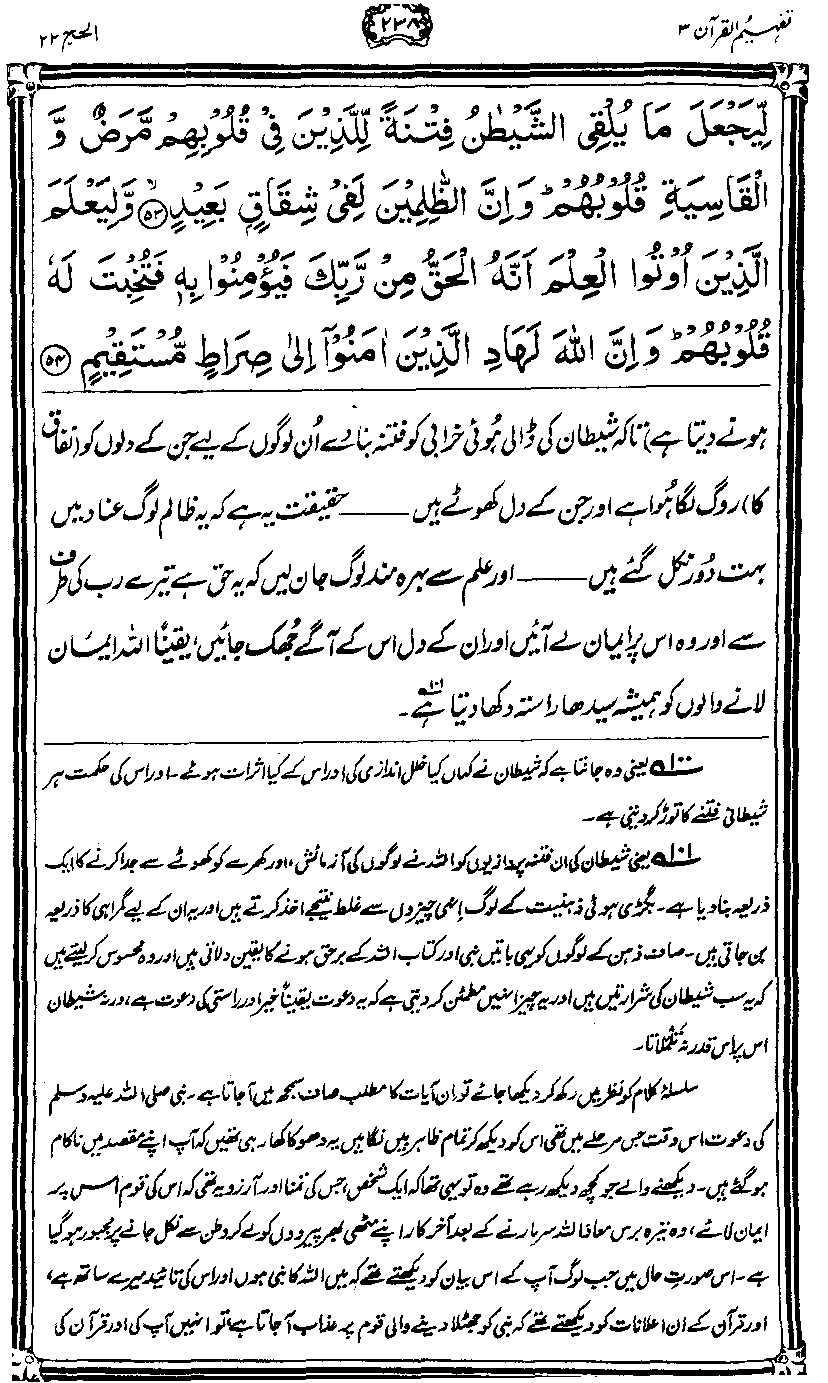 تفہیم القرآن ۳
۲۳۸
الحج ۲۲
لِّيَجْعَلَ مَا يُلْقِى الشَّيْطٰنُ فِتْنَةً لِّلَّذِيْنَ فِىْ قُلُوْبِهِمْ مَّرَضٌ وَّ
الْقَاسِيَةِ قُلُوْبُهُمْ ؕ وَاِنَّ الظّٰلِمِيْنَ لَفِىْ شِقَاقٍۭ بَعِيْدٍ ۙ﴿۵۳﴾ وَّلِيَعْلَمَ
الَّذِيْنَ اُوْتُوا الْعِلْمَ اَنَّهُ الْحَقُّ مِنْ رَّبِّكَ فَيُؤْمِنُوْا بِهٖ فَتُخْبِتَ لَهٗ
قُلُوْبُهُمْ ؕ وَاِنَّ اللّٰهَ لَهَادِ الَّذِيْنَ اٰمَنُوْۤا اِلٰى صِرَاطٍ مُّسْتَقِيْمٍ ﴿۵۴﴾
ہونے دیتا ہے) تاکہ شیطان کی ڈالی ہُوئی خرابی کو فتنہ بنا دے اُن لوگوں کے لیے جن کے دلوں کو (نفاق
کا) روگ لگا ہُوا ہے اور جن کے دل کھوٹے ہیں ــــــ حقیقت یہ ہے کہ یہ ظالم لوگ عناد میں
بہت دُور نکل گئے ہیں ــــــ اور علم سے بہرہ مند لوگ جان لیں کہ یہ حق ہے تیرے رب کی طرف
سے اور وہ اس پر ایمان لے آئیں اور ان کے دل اس کے آگے جُھک جائیں، یقیناً اللہ ایمان
لانے والوں کو ہمیشہ سیدھا راستہ دکھا دیتا ہے۱۰۱۔
۱۰۰؎ یعنی وہ جانتا ہے کہ شیطان نے کہاں کیا خلل اندازی کی اور اس کے کیا اثرات ہوئے۔ اور اس کی حکمت ہر
شیطانی فتنے کا توڑ کر دیتی ہے۔
۱۰۱؎ یعنی شیطان کی ان فتنہ پردازیوں کو اللہ نے لوگوں کی آزمائش، اور کھرے کو کھوٹے سے جدا کرنے کا ایک
ذریعہ بنا دیا ہے۔ بگڑی ہوئی ذہنیت کے لوگ اِنہی چیزوں سے غلط نتیجے اخذ کرتے ہیں اور یہ ان کے لیے گمراہی کا ذریعہ
بن جاتی ہیں۔ صاف ذہن کے لوگوں کو یہی باتیں نبی اور کتاب اللہ کے برحق ہونے کا یقین دلاتی ہیں اور وہ محسوس کر لیتے ہیں
کہ یہ سب شیطان کی شرارتیں ہیں اور یہ چیز انہیں مطمئن کر دیتی ہے کہ یہ دعوت یقیناً خیر اور راستی کی دعوت ہے، ورنہ شیطان
اس پر اس قدر نہ تلملاتا۔
سلسلۂ کلام کو نظر میں رکھ کر دیکھا جائے تو ان آیات کا مطلب صاف سمجھ میں آجاتا ہے۔ نبی صلی اللہ علیہ وسلم
کی دعوت اس وقت جس مرحلے میں تھی اس کو دیکھ کر تمام ظاہر بیں نگاہیں یہ دھوکا کھا رہی تھیں کہ آپ اپنے مقصد میں ناکام
ہو گئے ہیں۔ دیکھنے والے جو کچھ دیکھ رہے تھے وہ تو یہی تھا کہ ایک شخص، جس کی تمنا اور آرزو یہ تھی کہ اس کی قوم اس پر
ایمان لائے، وہ تیرہ برس معاذ اللہ سر مارنے کے بعد آخر کار اپنے مٹھی بھر پیرووں کو لے کر وطن سے نکل جانے پر مجبور ہو گیا
ہے۔ اس صورتِ حال میں جب لوگ آپ کے اس بیان کو دیکھتے تھے کہ میں اللہ کا نبی ہوں اور اس کی تائید میرے ساتھ ہے،
اور قرآن کے ان اعلانات کو دیکھتے تھے کہ نبی کو جھٹلا دینے والی قوم پر عذاب آجاتا ہے، تو انہیں آپ کی اور قرآن کی